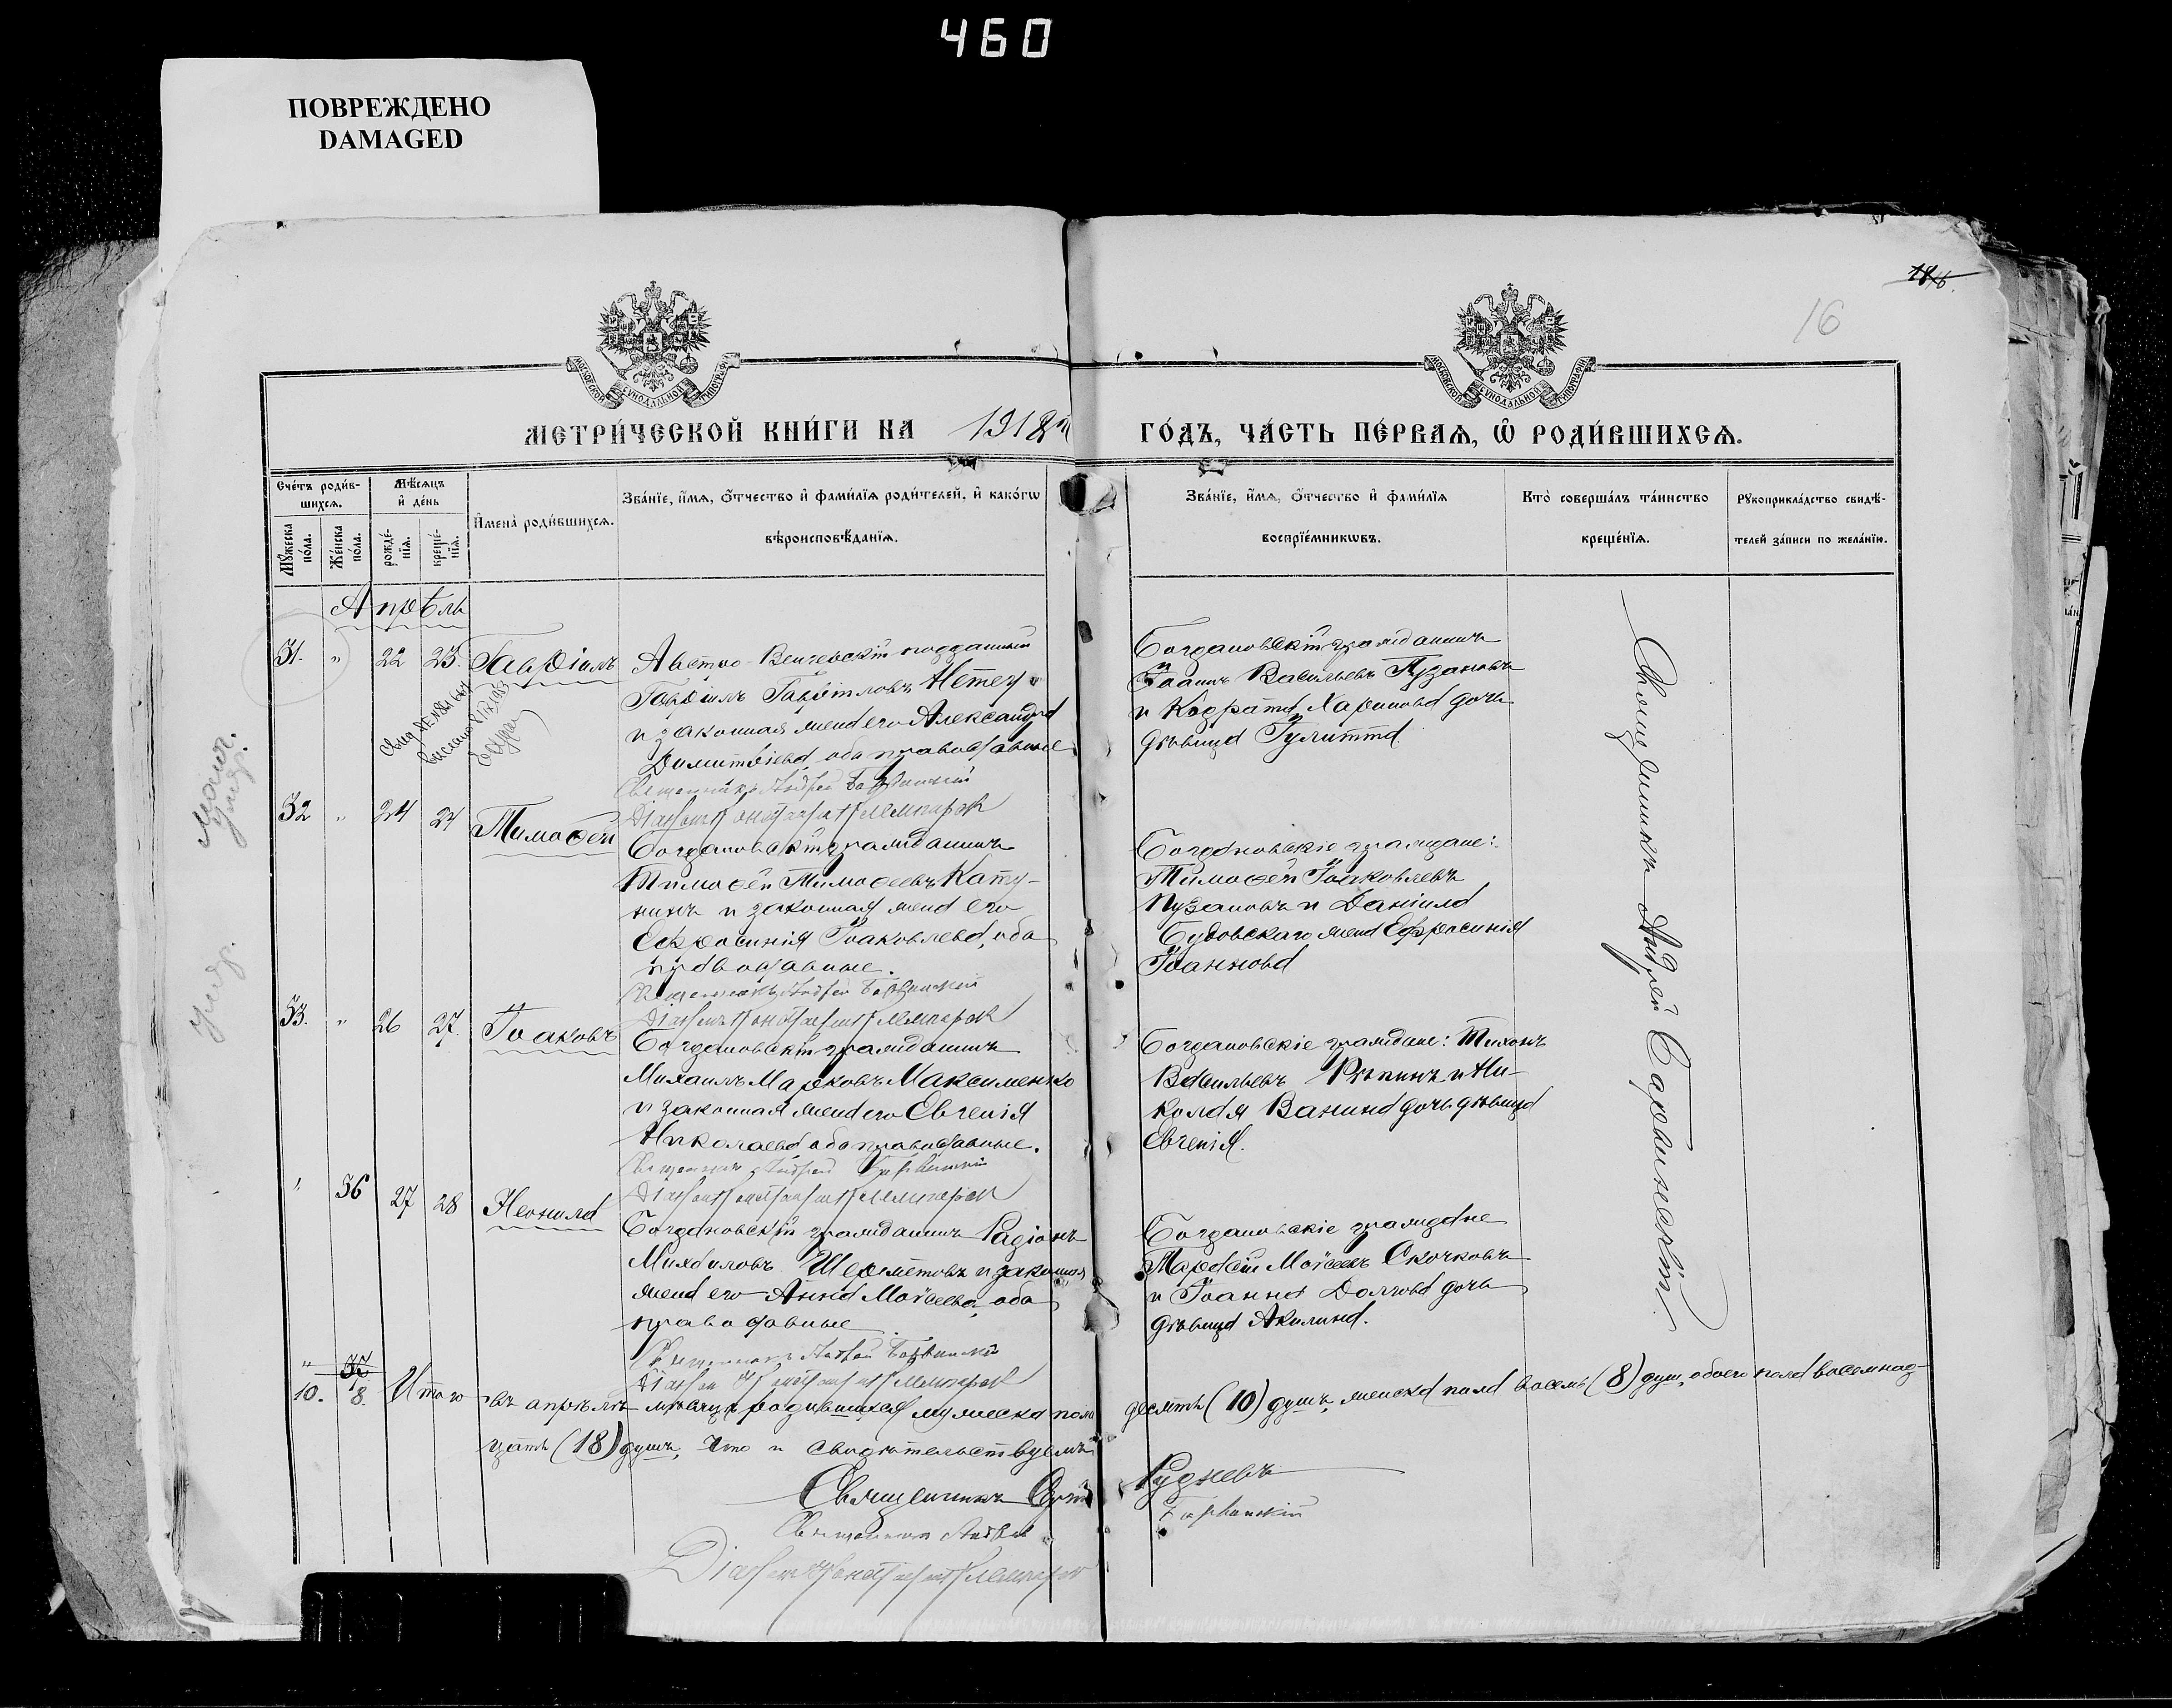 460
ПОВРЕЖДЕНО
DAMAGED
16
МОСКОВСКОЙ СѴНОДАЛЬНОЙ ТИПОГРАФІИ
МОСКОВСКОЙ СѴНОДАЛЬНОЙ ТИПОГРАФІИ
МЕТРИ́ЧЕСКОЙ КНИ́ГИ НА 1918й ГО́ДЪ, ЧА́СТЬ ПЕ́РВАѦ, Ѡ҆ РОДИ́ВШИХСѦ.
Сче́тъ роди́в-
шихсѧ.
Мꙋ́жеска по́ла.
Же́нска по́ла.
Мѣ́сѧцъ
и҆ де́нь
рожде́-нїѧ.
креще́-нїѧ.
И҆мена̀ роди́вшихсѧ.
Зва́нїе, и҆́мѧ, ѻ҆́тчество и҆ фами́лїѧ роди́телей, и҆ како́гѡ
вѣроисповѣ́данїѧ.
Зва́нїе, и҆́мѧ, ѻ҆́тчество и҆ фами́лїѧ
воспрїе́мникѡвъ.
Кто̀ соверша́лъ та́инство
креще́нїѧ.
Рꙋкоприкла́дство свидѣ́-
телей за́писи по жела́нїю.
Апрѣль
31. " 22 23. Гавріилъ
Австро-Венгерскій подданный
Гавріилъ Гавріиловъ Немеч
и законная жена его Александра
Димитріева, оба православные
Священникъ Андрей Барвинскій
Богдановскій гражданинъ
Іоаннъ Васильевъ Пузановъ
и Кодрата Харинова дочь
дѣвица Іулитта
32 " 24 24 Тимоѳей
Богдановскій гражданинъ
Тимоѳей Тимоѳеевъ Кату-
нинъ и законная жена его
Евфросинія Іоаковлева, оба
православные.
Священникъ Андрей Барвинскій
Богдановскіе граждане:
Тимоѳей Іоаковлевъ
Пузановъ и Даніила
Будовскаго жена Ефросинія
Іоаннова
33. " 26 27. Іоаковъ
Богдановскій гражданинъ
Михаилъ Марковъ Максименко
и законная жена его Евгенія
Николаева, оба православные.
Священникъ Андрей Барвинскій
Богдановскіе граждане: Тихонъ
Васильевъ Рѣпинъ и Ни-
колая Ванина дочь дѣвица
Евгенія.
" 36 27 28 Неонила
Богдановскій гражданинъ Радіонъ
Михаиловъ Шереметовъ и законная
жена его Анна Моѵсеева, оба
православные
Священникъ Андрей Барвинскій
Богдановскіе граждане
Тарасій Моѵсеевъ Скочковъ
и Іоанна Долгова дочь
дѣвица Акилина.
Священникъ Андрей Барвинскій.
10. 8. Итого въ апрѣлѣ мѣсяцѣ родившихся мужеска пола десять (10) душъ, женска пола восемь (8) душ, обоего пола восемнад-
цать (18) душъ, Что и свидѣтельствуемъ
Священникъ Сергій Рудневъ
Священникъ Андрей Барвинскій